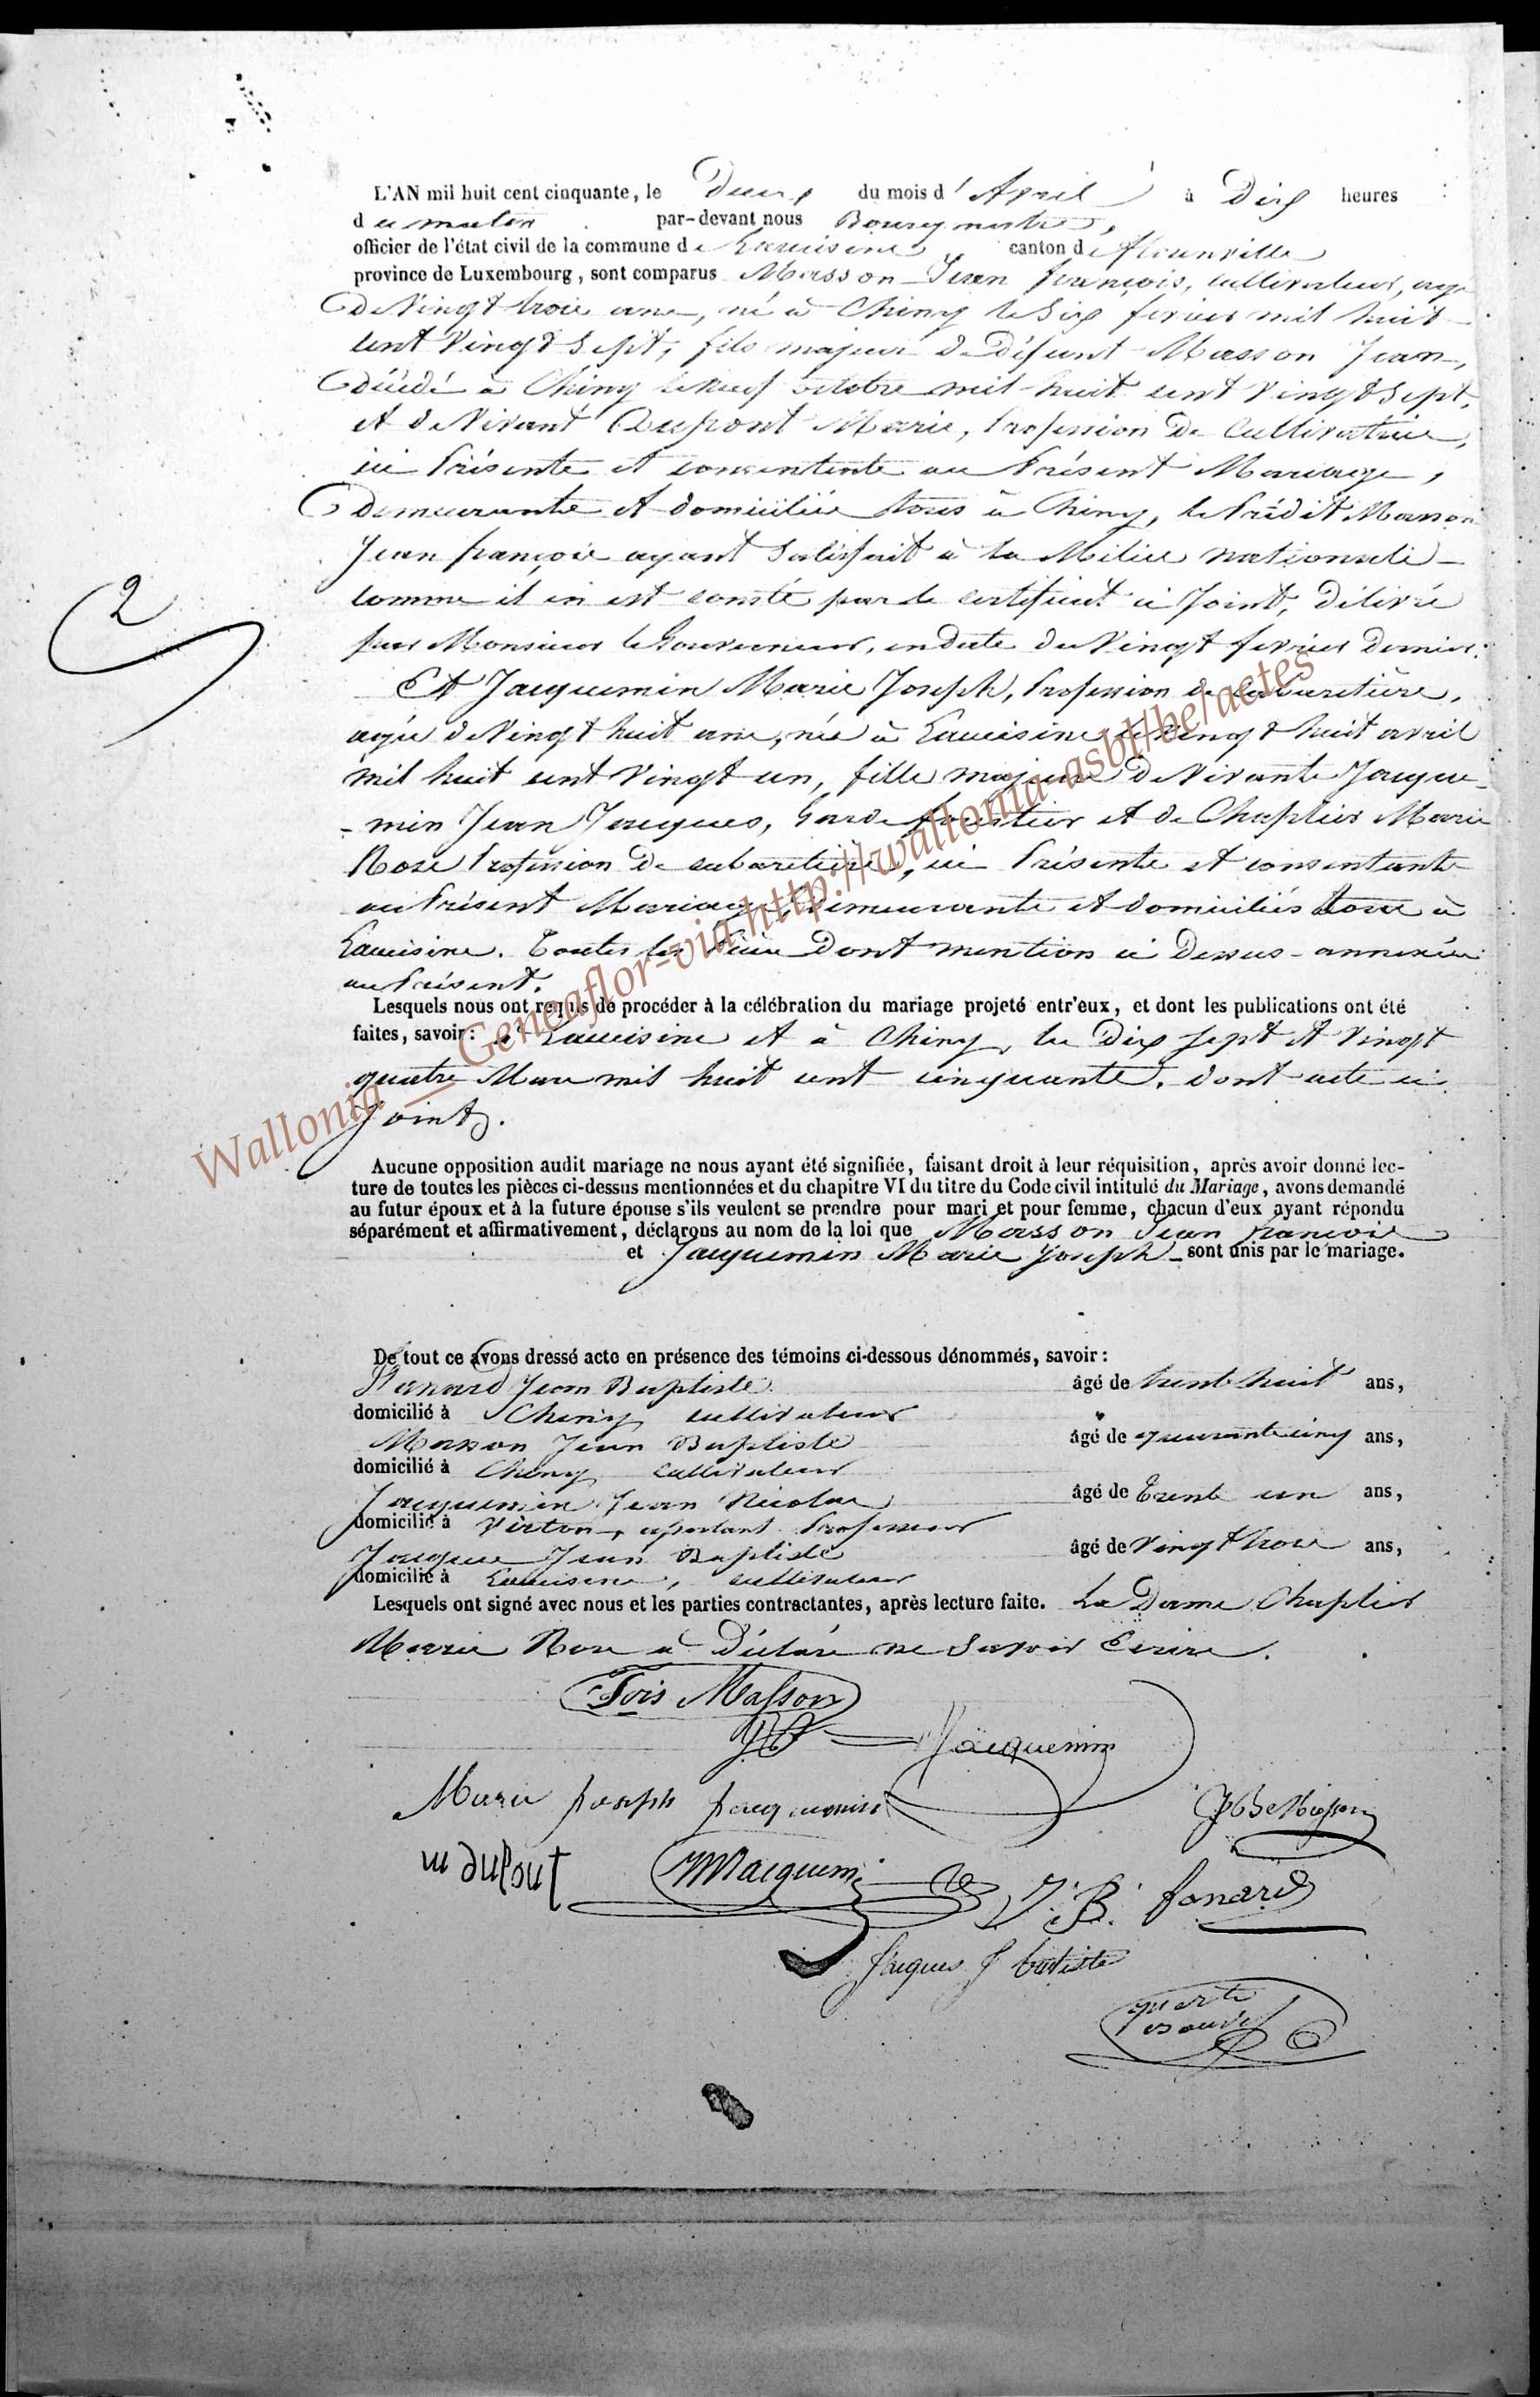 L'AN mil huit cent cinquante, le Deux du mois d'Avril à Dix heures
du matin par-devant nous Bourgmestre,
officier de l'état civil de la commune de Lacuisine canton de florenville
province de Luxembourg, sont comparus Masson Jean françois, cultivateur, agé
De Vingt trois ans, né à Chiny le Six fevrier mil huit
cent Vingt Sept, fils majeur de Défunt Masson Jean,
Décédé à Chiny le neuf octobre mil huit cent Vingt Sept,
et de Vivant Dupont Marie, Profession De Cultivatrice,
ici Présente et consentente au Présent Mariage,
Demeurante et domiciliée tous à Chiny, le Prédit Masson
Jean françois ayant Satisfait à la Milice nationale
comme il en est consté par le certificat ci Joint, Délivré
par Monsieur le Gouverneur, en date du Vingt fevrier Dernier.
Et Jacquemin Marie Joseph, Profession de cabaretière,
agée de Vingt huit ans, née à Lacuisine le Vingt huit avril
mil huit cent Vingt un, fille majeure De Vivante Jacque-
-min Jean Jacques, Garde forestier et de Chaplier Marie
Rose Profession De cabaretière, ici Présente et consentante
au Présent Mariage, Demeurante et domiciliés tous à
Lacuisine. Toutes les Pièces Dont mention ci Dessus annexées
au Présent.
Lesquels nous ont requis de procéder à la célébration du mariage projeté entr'eux, et dont les publications ont été
faites, savoir: à Lacuisine et à Chiny, les Dix sept et Vingt
quatre Mars mil huit cent cinquante, dont acte ci
Joints.
2
Aucune opposition audit mariage ne nous ayant été signifiée, faisant droit à leur réquisition, après avoir donné lec-
ture de toutes les pièces ci-dessus mentionnées et du chapitre VI du titre du Code civil intitulé du Mariage, avons demandé
au futur époux et à la future épouse s'ils veulent se prendre pour mari et pour femme, chacun d'eux ayant répondu
séparément et affirmativement, déclarons au nom de la loi que Masson Jean françois
et Jacquemin Marie Joseph sont unis par le mariage.
De tout ce avons dressé acte en présence des témoins ci-dessous dénommés, savoir:
Jean Baptiste âgé de trente huit ans,
domicilié à Chiny cultivateur
Masson Jean Baptiste âgé de quarante cinq ans,
domicilié à Chiny cultivateur
Jacquemin Jean Nicolas âgé de Trente un ans,
domicilié à Virton, Professeur
Jacques Jean Baptiste âgé de Vingt trois ans,
domicilié à Lacuisine, cultivateur
Lesquels ont signé avec nous et les parties contractantes, après lecture faite. La Dame Chaplier
Marie Rose a Déclaré ne Savoir Ecrire.
Fois Masson
Jacquemin
Marie joseph jacquemin
JBte Masson
m dupont
Jacquemin
J. B. fanard
Jacques J batiste
Wallonia _ Geneaflor-via http://wallonia-asbl/be/actes